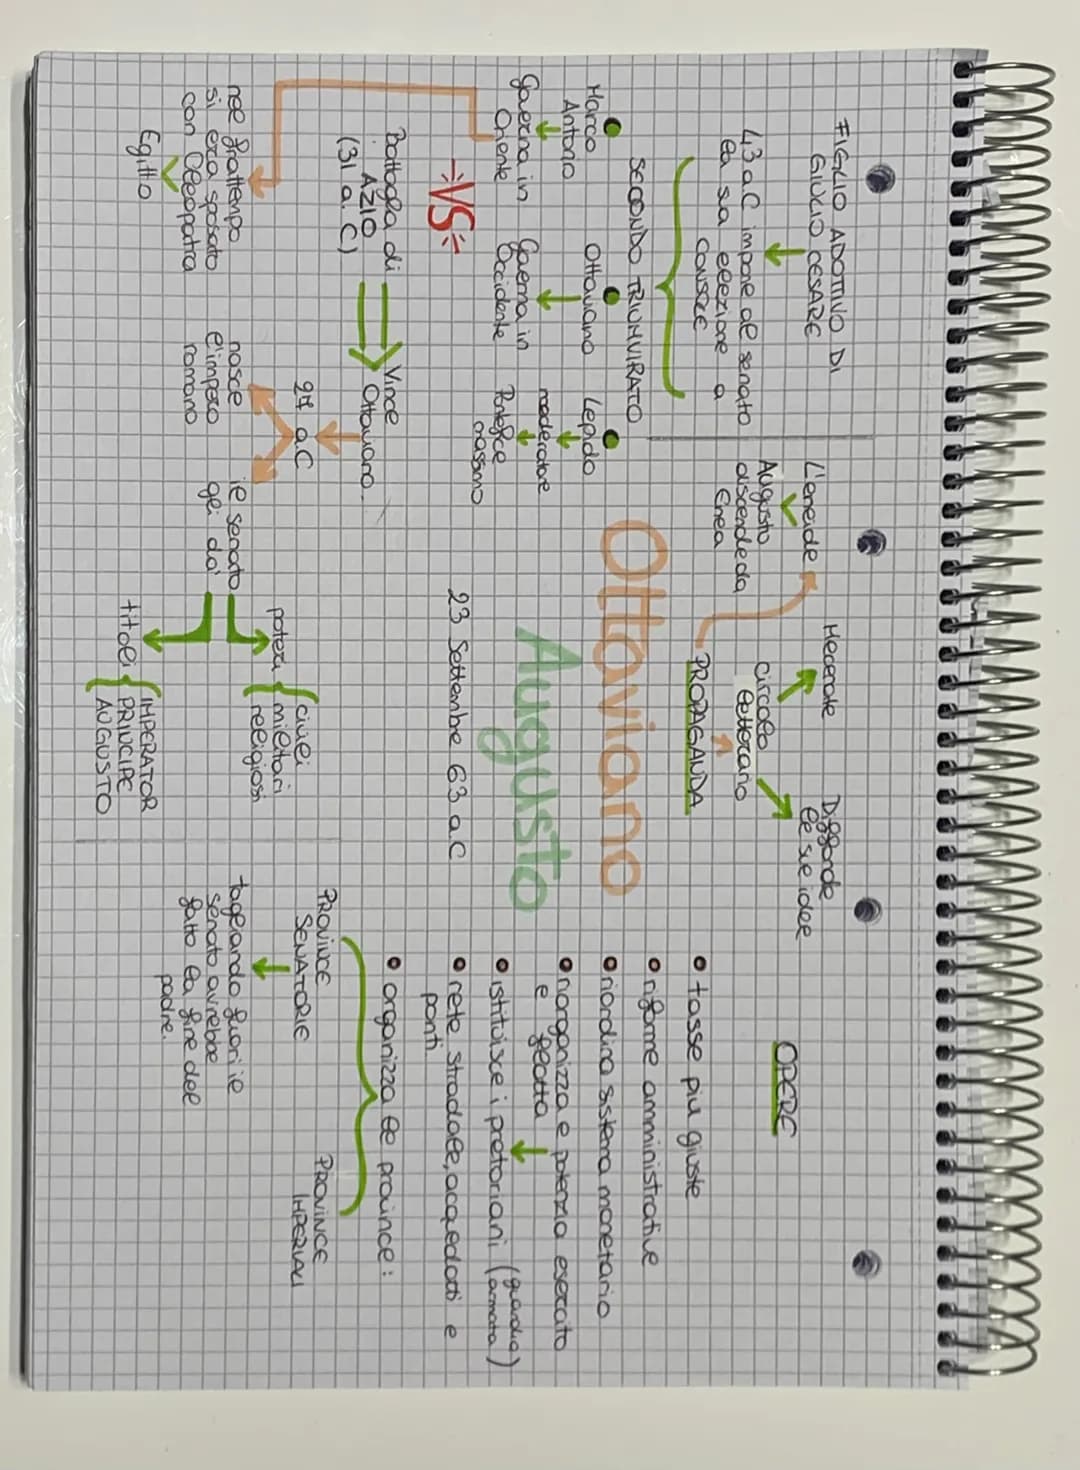 FIGLIO ADOTTIVO DI
GIULIO CESARE
43 a.C impone al senato
la sua elezione a
CONSOLE
SECONDO TRIUMVIRATO
Marco
Antonio
Governa in
Oriente
Ottaviano
Governa in
Occidente
Lepido
moderatore
Pontefice
massimo
VS
Battaglia di
AZIO
(31 a.C)
Vince
Ottaviano.
nel frattempo
si era sposato
con Cleopatra
Egitto
27 a.C
nasce
l'impero
romano
il senato
gli da'
poteri
civili
militari
religiosi
titoli
IMPERATOR
PRINCIPE
AUGUSTO
L'eneide
Augusto
discende da
Enea
Mecenate
circolo
letterario
Diffonde
le sue idee
PROPAGANDA
Ottaviano
Augusto
23 Settembre 63 a.C
OPERE
• tasse più giuste
• riforme amministrative
• riordina sistema monetario
• riorganizza e potenzia esercito
e flotta
• istituisce i pretoriani (guardia armata)
• rete stradale, acquedotti e
ponti
• organizza le province:
PROVINCE
SENATORIE
tagliando fuori il
senato avrebbe
fatto la fine del
padre.
PROVINCE
IMPERIALI